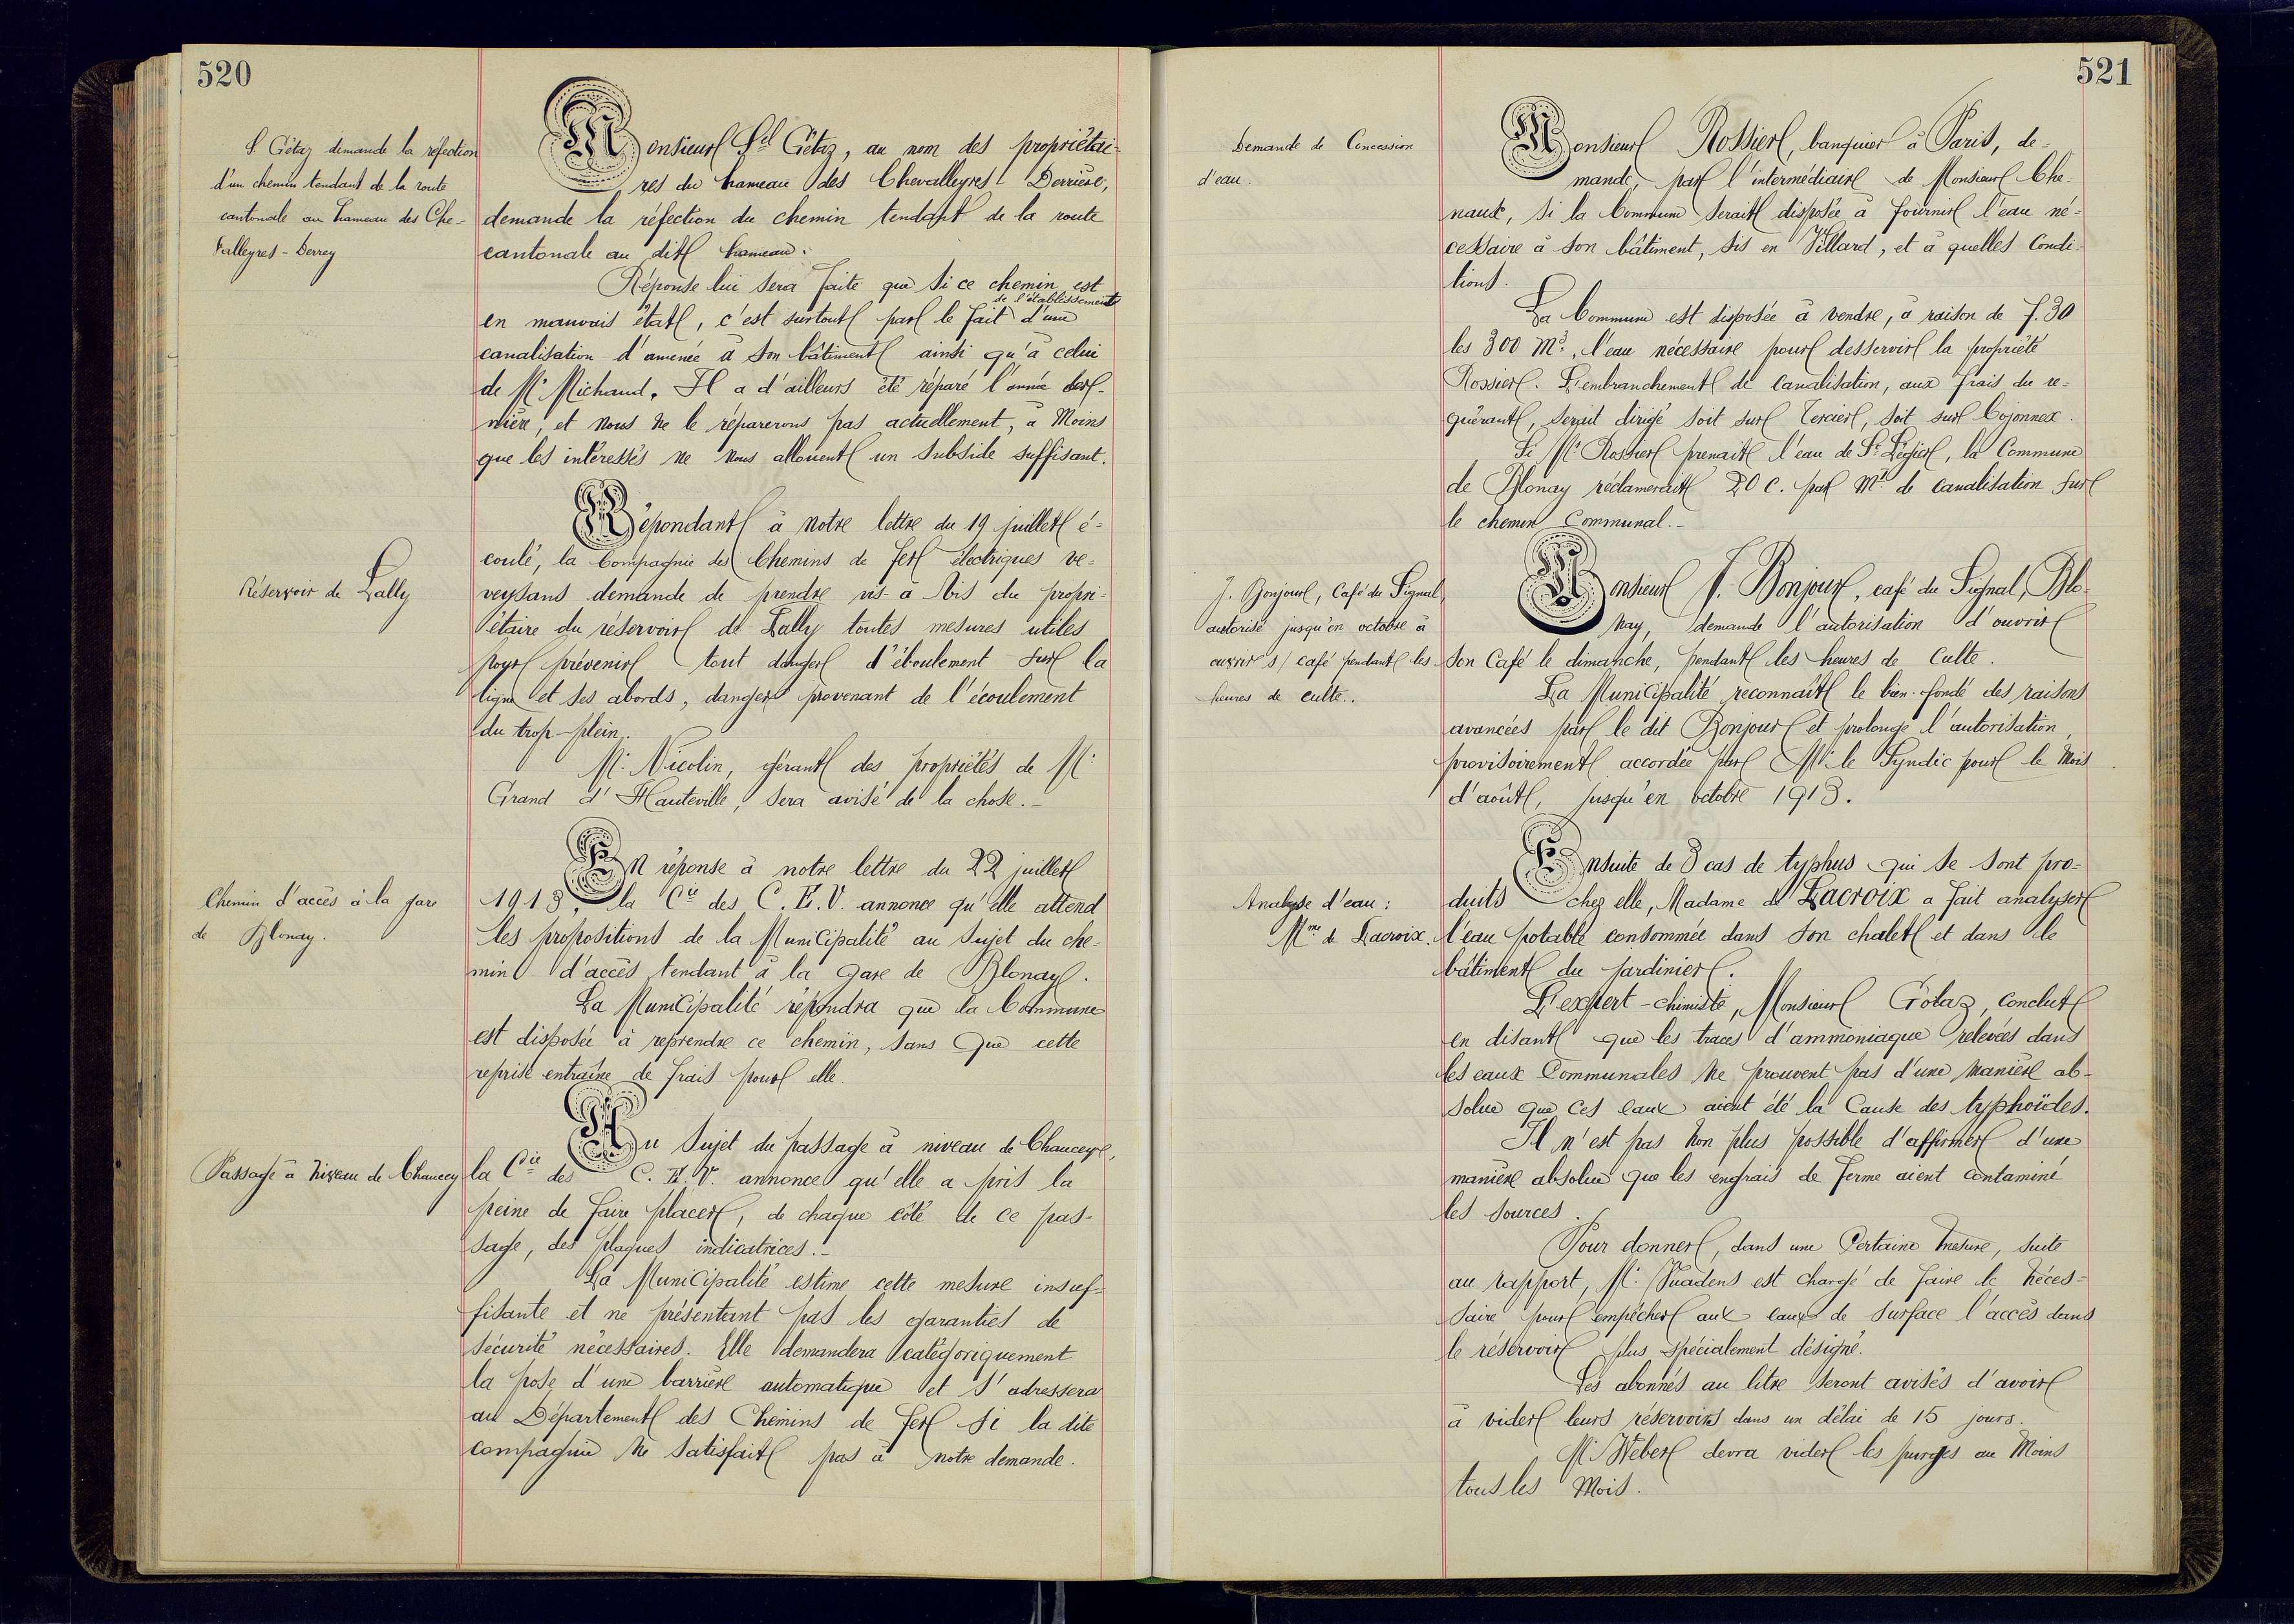 520
S. Gétaz demande la réfection
d'un chemin tendant de la route
cantonale au hameau des Che-
valleyres-Derrey
Monsieur Sel Gétaz, au nom des propriétai-
res du hameau des Chevalleyres-Derrière,
demande la réfection du chemin tendant de la route
cantonale au dit hameau.
Réponse lui sera faite que si ce chemin est
de l'établissement
en mauvais état, c'est surtout par le fait d'une
canalisation d'amenée à son bâtiment ainsi qu'à celui
de Mr Michaud. Il a d'ailleurs été réparé l'année der-
nière, et nous ne le réparerons pas actuellement, à moins
que les intéressés ne nous allouent un subside suffisant.
Réservoir de Lally
Répondant à notre lettre du 19 juillet é-
coulé, la Compagnie des Chemins de fer électriques ve-
veysans demande de prendre vis-à-vis du propri-
étaire du réservoir de Lally toutes mesures utiles
pour prévenir tout danger d'éboulement sur la
ligne et ses abords, dangers provenant de l'écoulement
du trop-plein.
Mr. Nicolin, gérant des propriétés de Mr.
Grand d'Hauteville, sera avisé de la chose.-
Chemin d'accès à la gare
de Blonay.
En réponse à notre lettre du 22 juillet
1913, la Cie des C.E.V. annonce qu'elle attend
les propositions de la Municipalité au sujet du che-
min d'accès tendant à la gare de Blonay.
La Municipalité répondra que la Commune
est disposée à reprendre ce chemin, sans que cette
reprise entraîne de frais pour elle.
Passage à niveau de Chaucey
Au sujet du passage à niveau de Chaucey,
la Cie des C.E.V. annonce qu'elle a pris la
peine de faire placer, de chaque côté de ce pas-
sage, des plaques indicatrices.-
La Municipalité estime cette mesure insuf-
fisante et ne présentant pas les garanties de
sécurité nécessaires. Elle demandera catégoriquement
la pose d'une barrière automatique et s'adressera
au Département des Chemins de fer si la dite
compagnie ne satisfait pas à notre demande.
521
Demande de Concession
d'eau.
Monsieur Rossier, banquier à Paris, de-
mande, par l'intermédiaire de Monsieur Che-
naux, si la Commune serait disposée à fournir l'eau né-
cessaire à son bâtiment, sis en Villard, et à quelles condi-
tions.
La Commune est disposée à vendre, à raison de f. 30
les 300 m3, l'eau nécessaire pour desservir la propriété
Rossier. L'embranchement de canalisation, aux frais du re-
quérant, serait dirigé soit sur Tercier, soit sur Cojonnex.
Si Mr. Rossier prenait l'eau de St. Légier, la Commune
de Blonay réclamerait 20 c. par mt. de canalisation sur
le chemin communal.-
J. Bonjour, Café du Signal,
autorisé jusqu'en octobre à
ouvrir s/ café pendant les
heures de culte..
Monsieur J. Bonjour, café du Signal, Blo-
nay, demande l'autorisation d'ouvrir
son Café le dimanche, pendant les heures de culte.
La Municipalité reconnaît le bien-fondé des raisons
avancées par le dit Bonjour et prolonge l'autorisation,
provisoirement accordée par Mr le Syndic pour le mois
d'août, jusqu'en octobre 1913.
Analyse d'eau:
Mme de Lacroix.
Ensuite de 3 cas de typhus qui se sont pro-
duits chez elle, Madame de Lacroix a fait analyser
l'eau potable consommée dans son chalet et dans le
bâtiment du jardinier.
L'expert-chimiste, Monsieur Golaz, conclut
en disant que les traces d'ammoniaque relevées dans
les eaux communales ne prouvent pas d'une manière ab-
solue que ces eaux aient été la cause des typhoïdes.
Il n'est pas non plus possible d'affirmer d'une
manière absolue que les engrais de ferme aient contaminé
les sources.
Pour donner, dans une certaine mesure, suite
au rapport, Mr. Puadens est chargé de faire le néces-
saire pour empêcher aux eaux de surface l'accès dans
le réservoir plus spécialement désigné.
Les abonnés au litre seront avisés d'avoir
à vider leurs réservoirs dans un délai de 15 jours.
Mr. Weber devra vider les purges au moins
tous les mois.